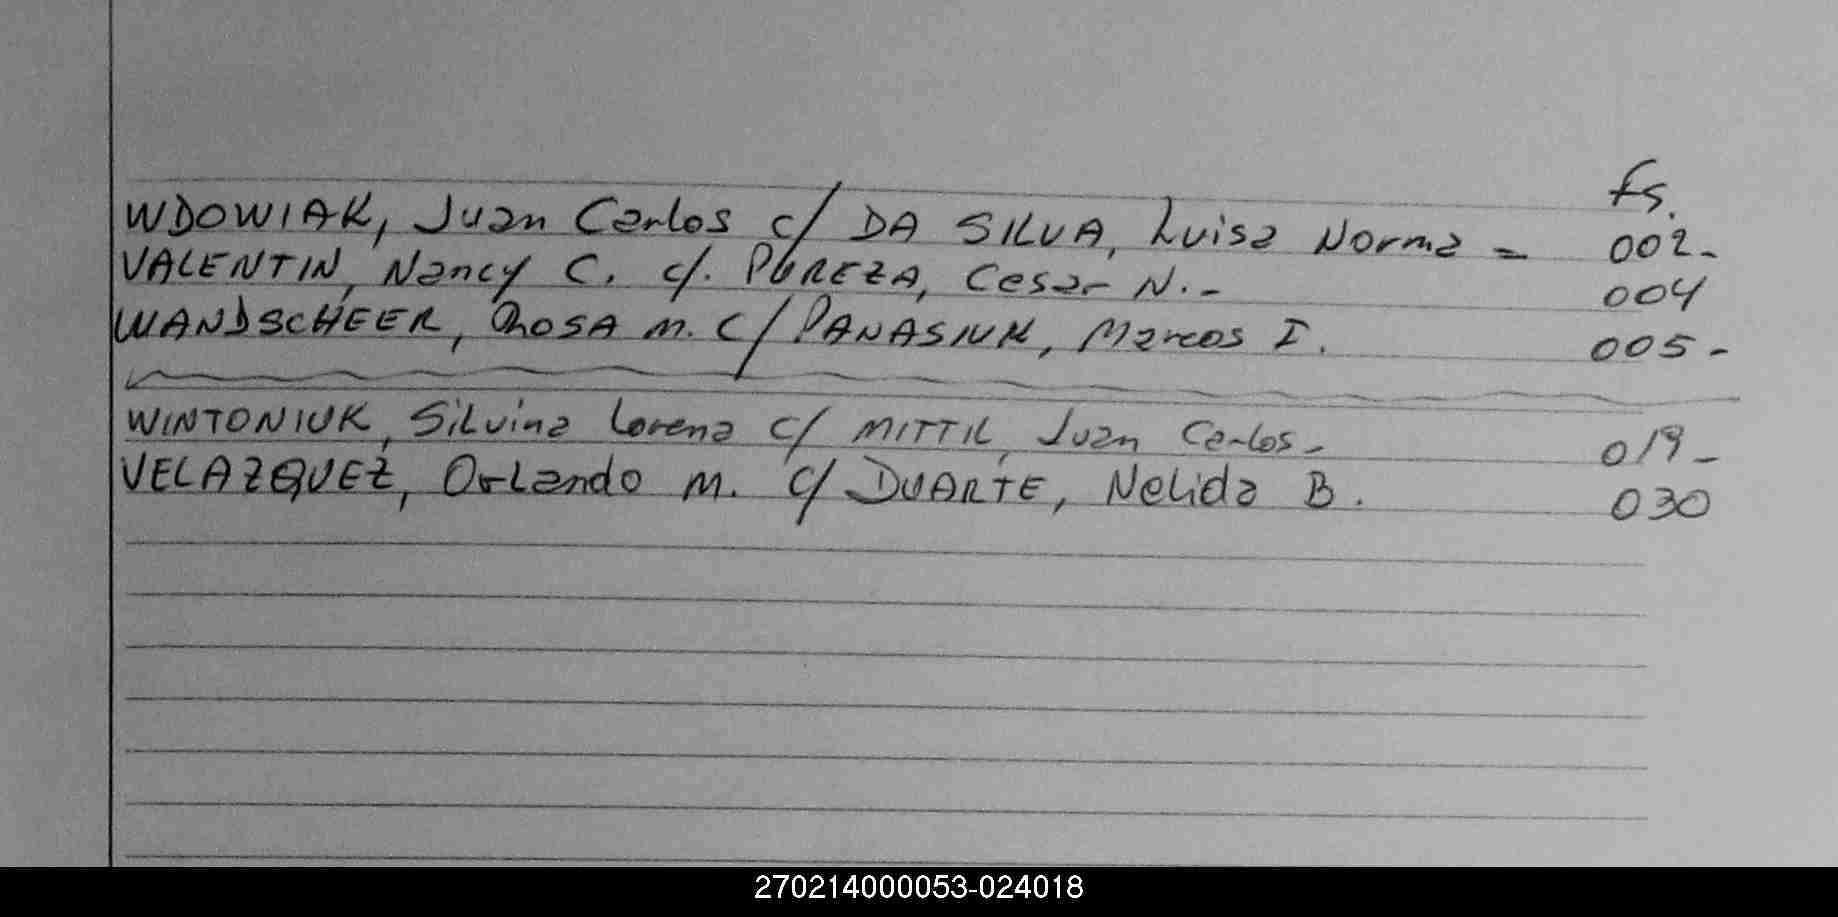 fs.
WDOWIAK, Juan Carlos c/ DA SILVA, Luisa Norma = 002-
VALENTIN, Nancy C. c/. PUREZA, Cesar N.- 004
WANDSCHEER, ROSA M. C/ PANASIUK, Marcos I. 005-
WINTONIUK, Silvina Lorena c/ MITTIL, Juan Carlos- 019-
VELAZQUEZ, Orlando M. c/ DUARTE, Nelida B. 030
270214000053-024018